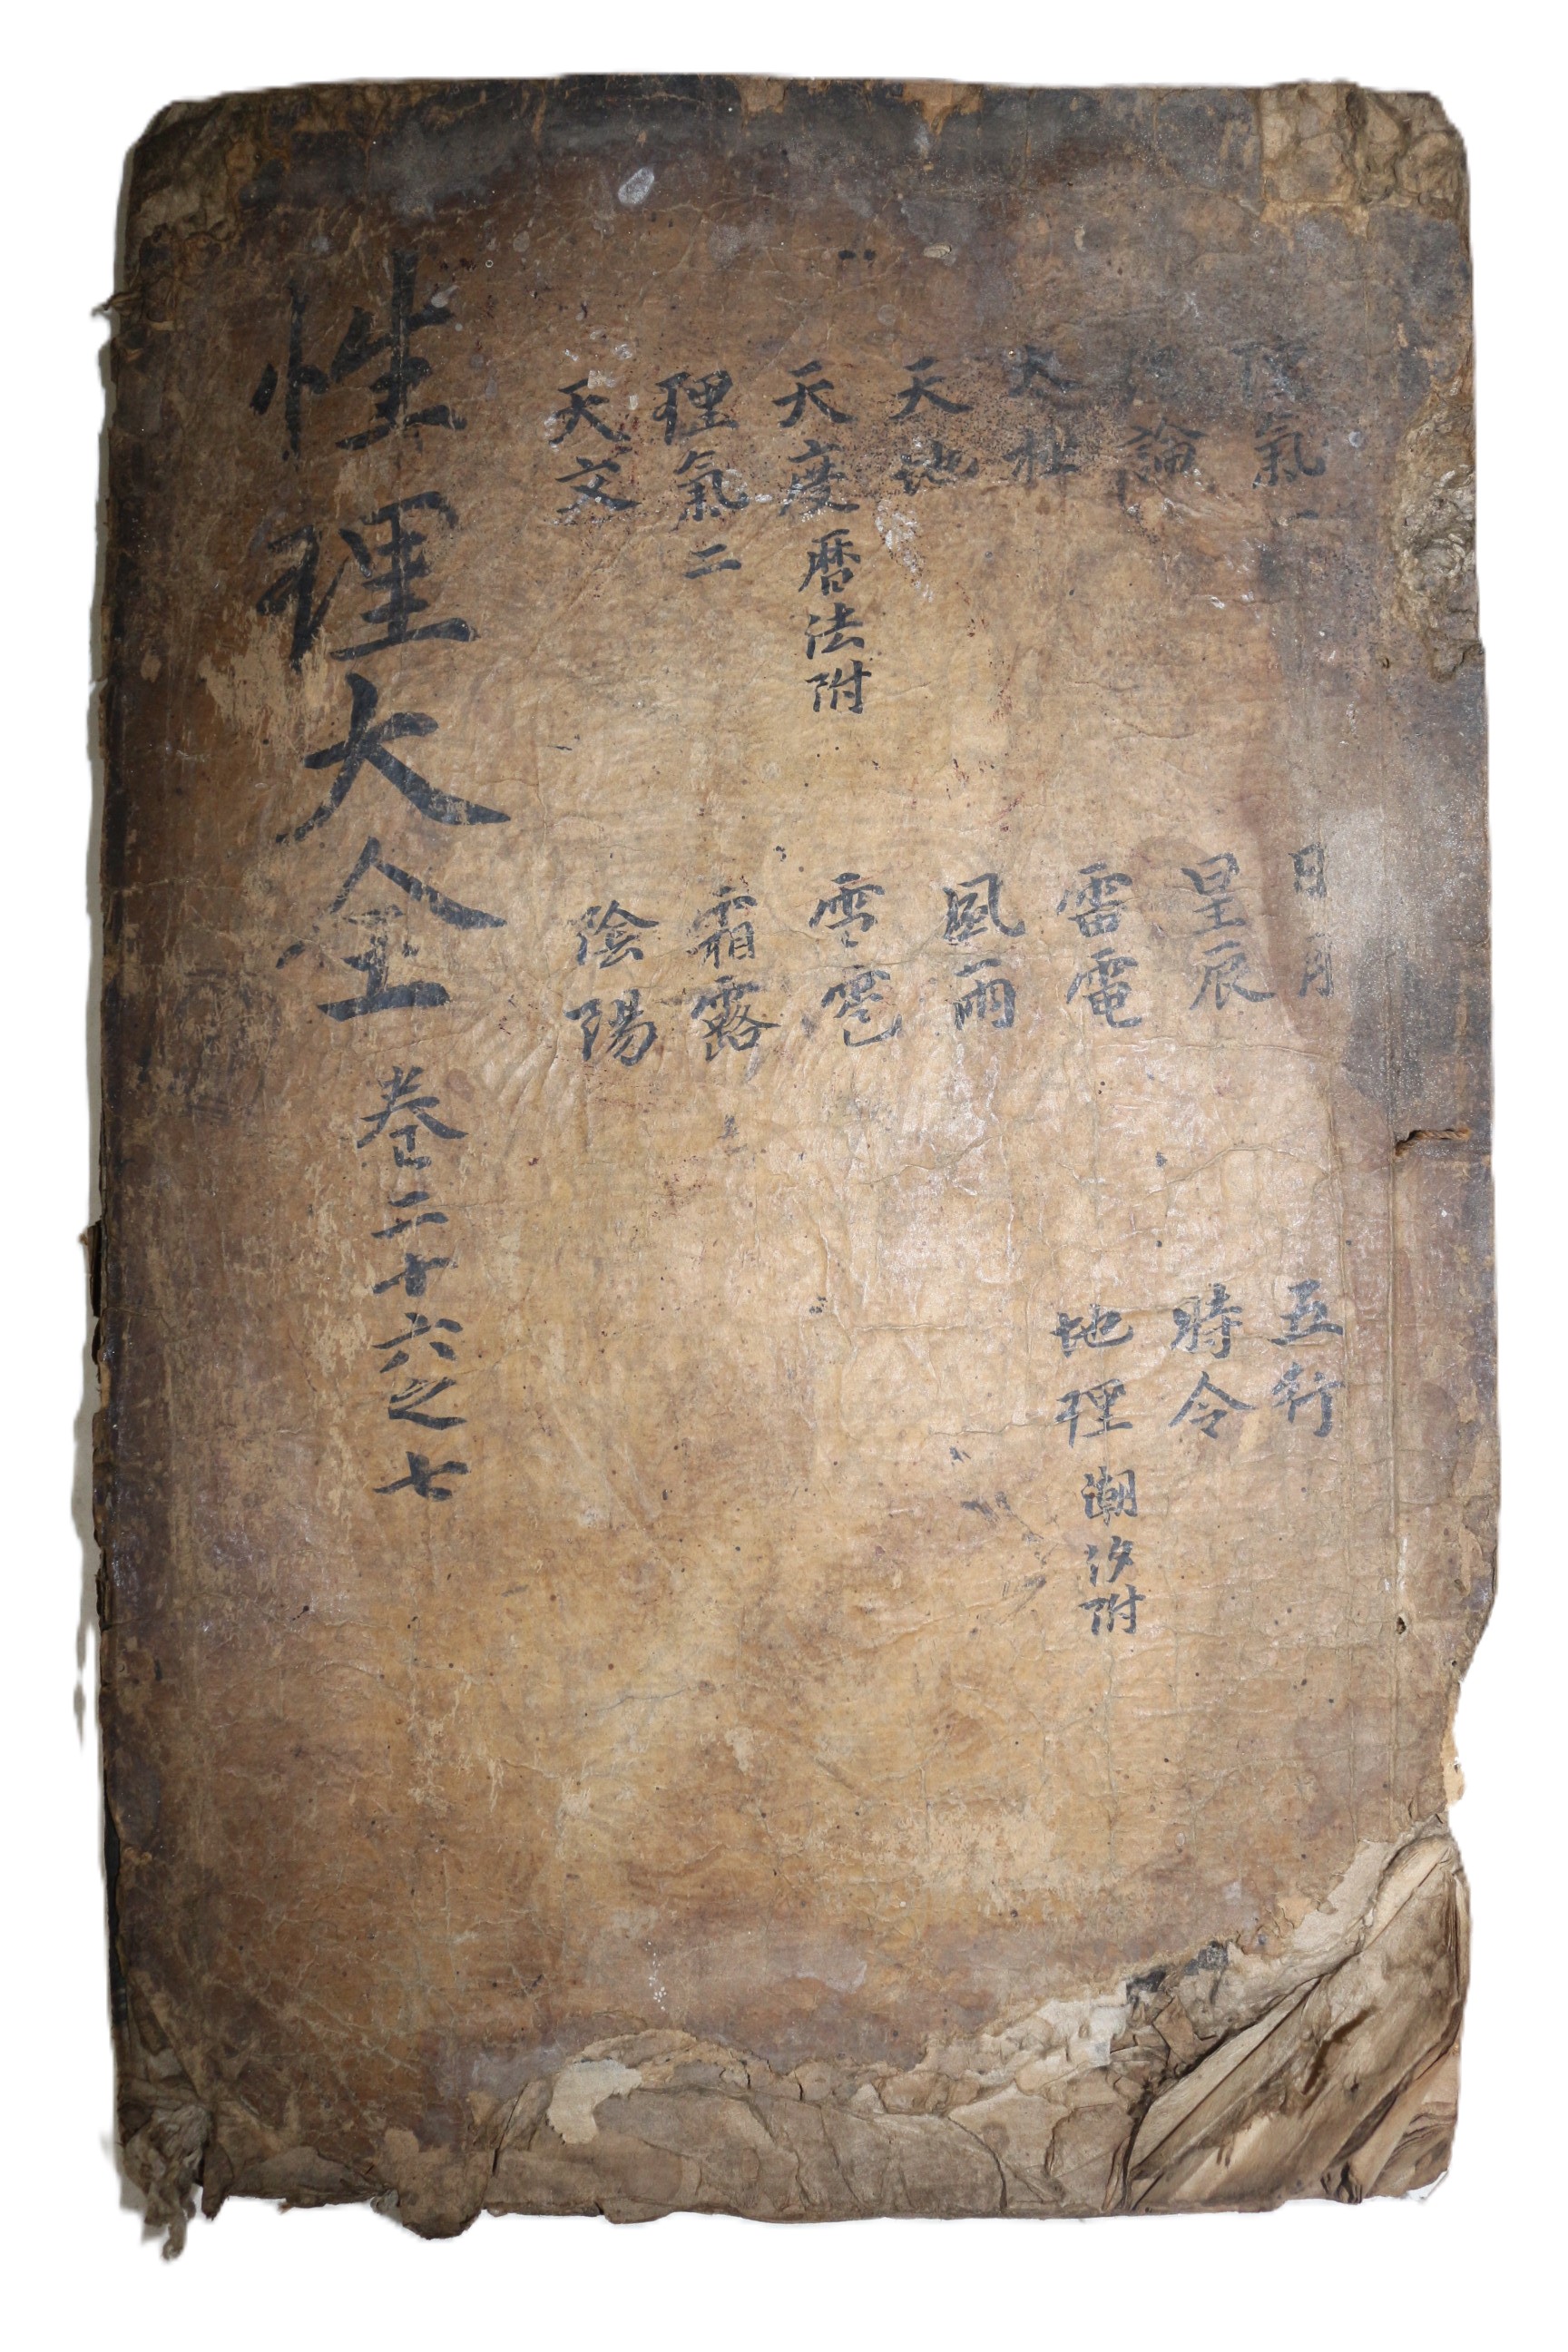 性理大全 卷二十六之七
理氣一
總論
太極
天地
天度 暦法附
理氣二
天文
日月
星辰
雷電
風雨
雪雹
霜露
陰陽
五行
時令
地理 潮汐附